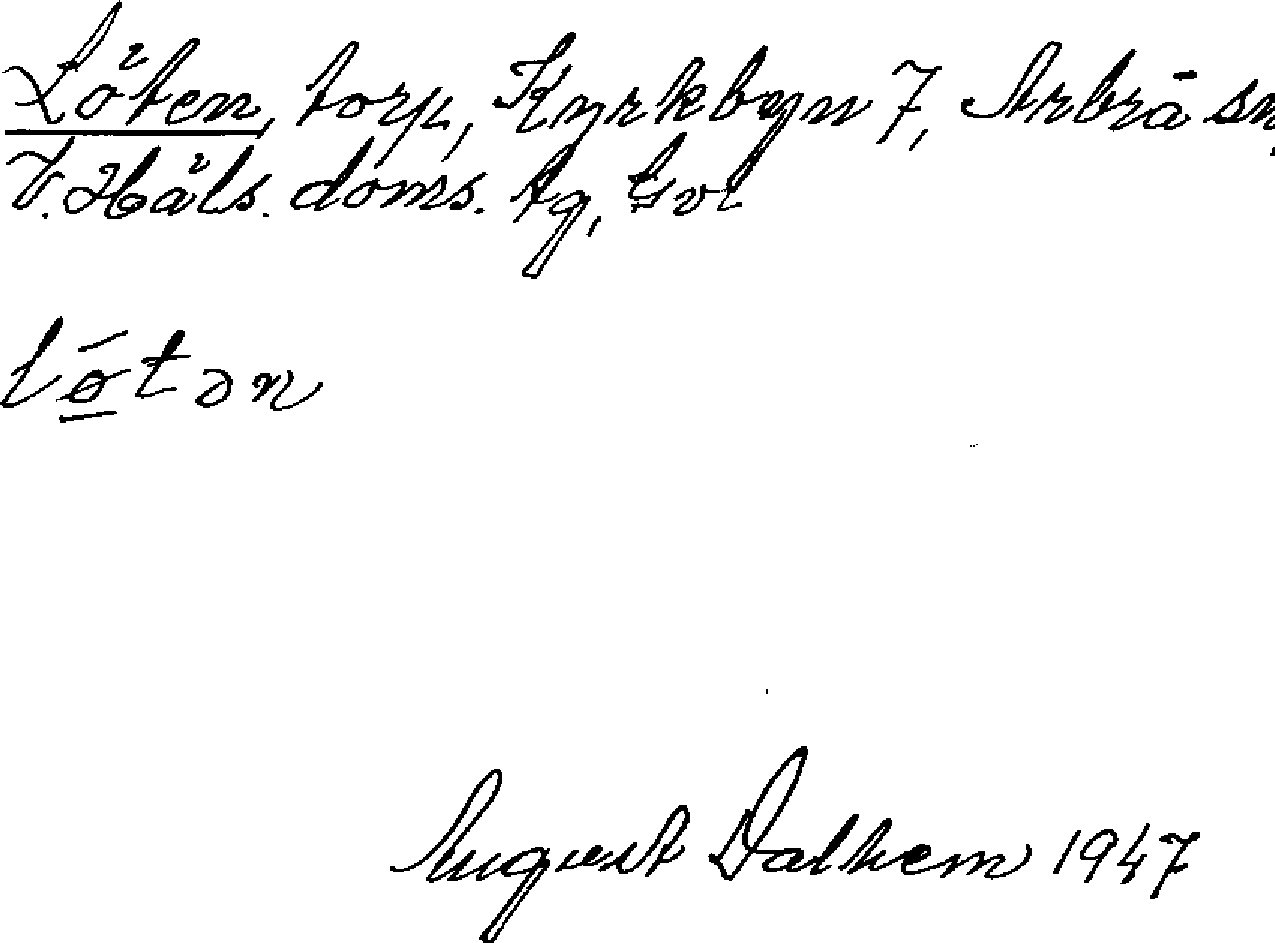 Löten, torp, Kyrkbyn 7, Arbrå sn,
V. Häls. doms. tg, Gvl
lǿ̲tən
August Dalhem 1947